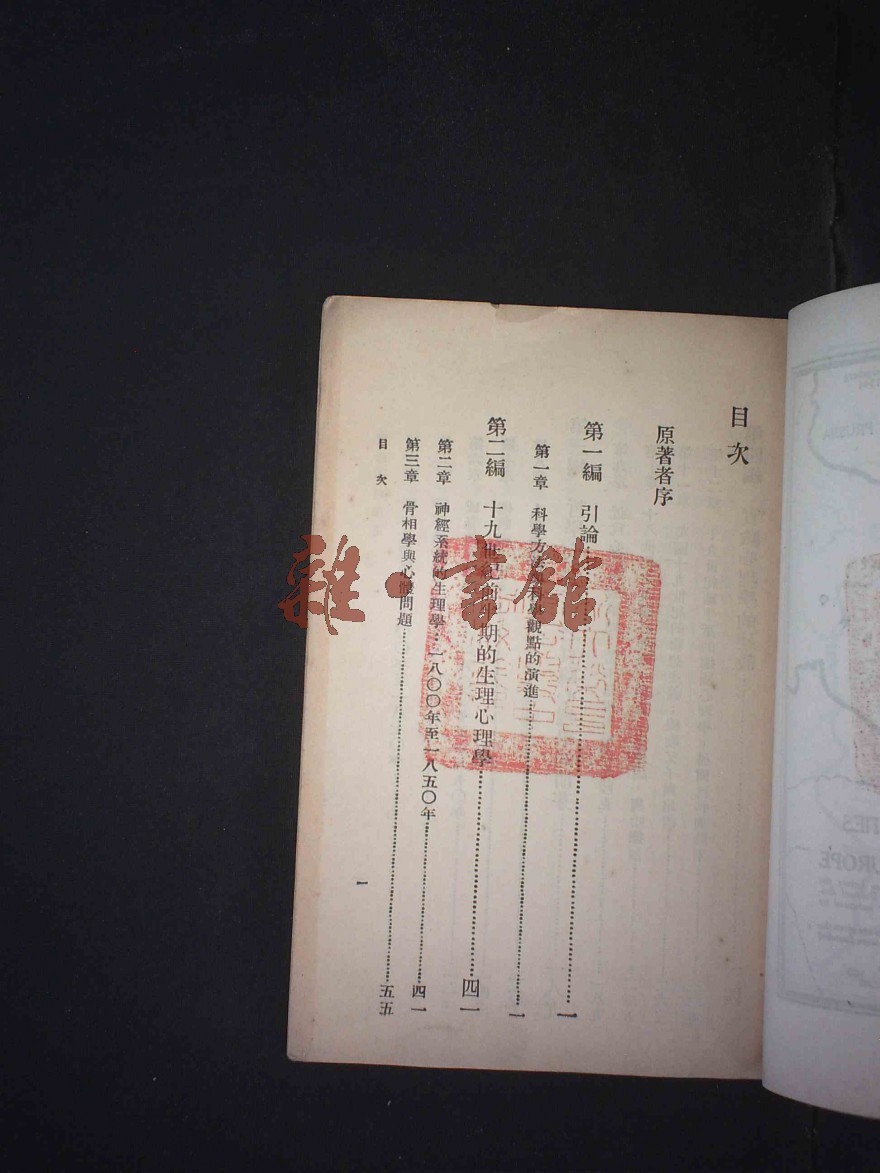 目次
原著者序
第一編　引論…………一
第一章　科學方法與科學觀點的演進…………一
第二編　十九世紀前半期的生理心理學…………四一
第二章　神經系統的生理學：一八〇〇年至一八五〇年…………四一
第三章　骨相學與心體問題…………五五
目次
一
雜·書館